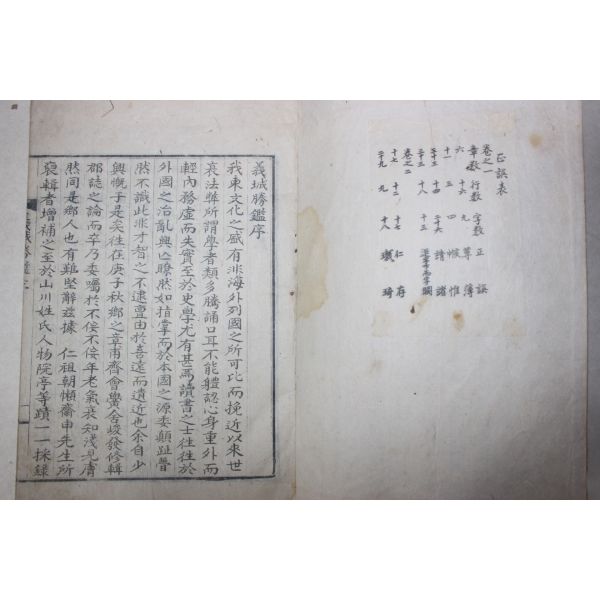 正誤表
卷之一
章數 行數 字數 正 誤
六 十六 九 簿 薄
十一 三 四 惟
二十三
卷之二
十七 十二 十七 仁 存
二十九 九 十八 琦
義城勝鑑序
我東文化之盛有非海外列國之所可比而挽近以來世
衰法弊所謂學者類多騰誦口耳不能體認心身重外而
輕內務虛而失實至於史學尤有甚焉讀書之士往往於
外國之治亂興亡瞭然如指掌而於本國之源委顚趾瞢
然不識此非才智之不逮亶由於喜遠而遺近也余自少
興慨于是矣往在庚子秋鄕之章甫齊會黌舍峻發修輯
郡誌之論而卒乃委囑於不佞不佞年老氣衰知淺見膚
然同是鄕人也有難堅辭玆據 仁祖朝懶齋申先生所
裒輯者增補之至於山川姓氏人物院亭等蹟一一採錄